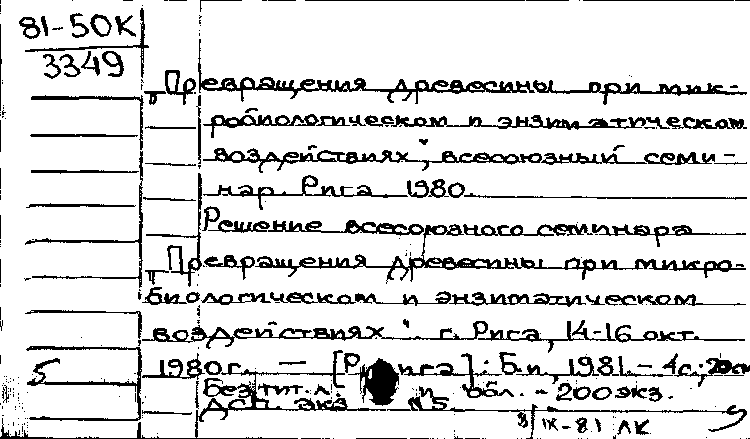 81-50К
3349
„Превращения древесины при мик-
робиологическом и энзиматическом
воздействиях", всесоюзный семи-
нар. Рига. 1980.
Решение всесоюзного семинара
„Превращения древесины при микро-
биологическом и энзиматическом
воздействиях". г. Рига, 14-16 окт.
5 1980г. — [Рига] : Б.и., 1981. - 4с.; 20см
Без тит. л. и обл. - 200 экз.
Деп. экз. №5.
3/IX-81 ЛК